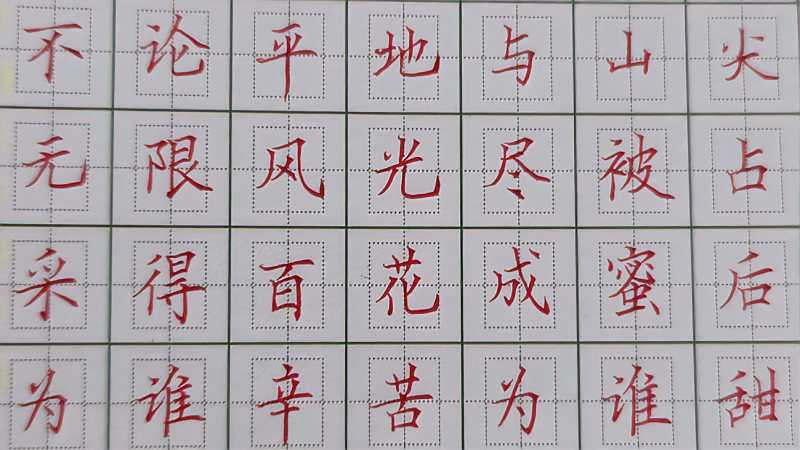 不论平地与山尖
无限风光尽被占
采得百花成蜜后
为谁辛苦为谁甜